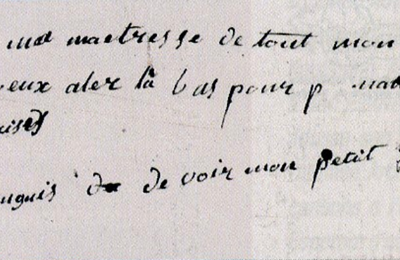 ma maetresse de tout mon
veux aler là bas pour p
uises
nguis de voir mon petit